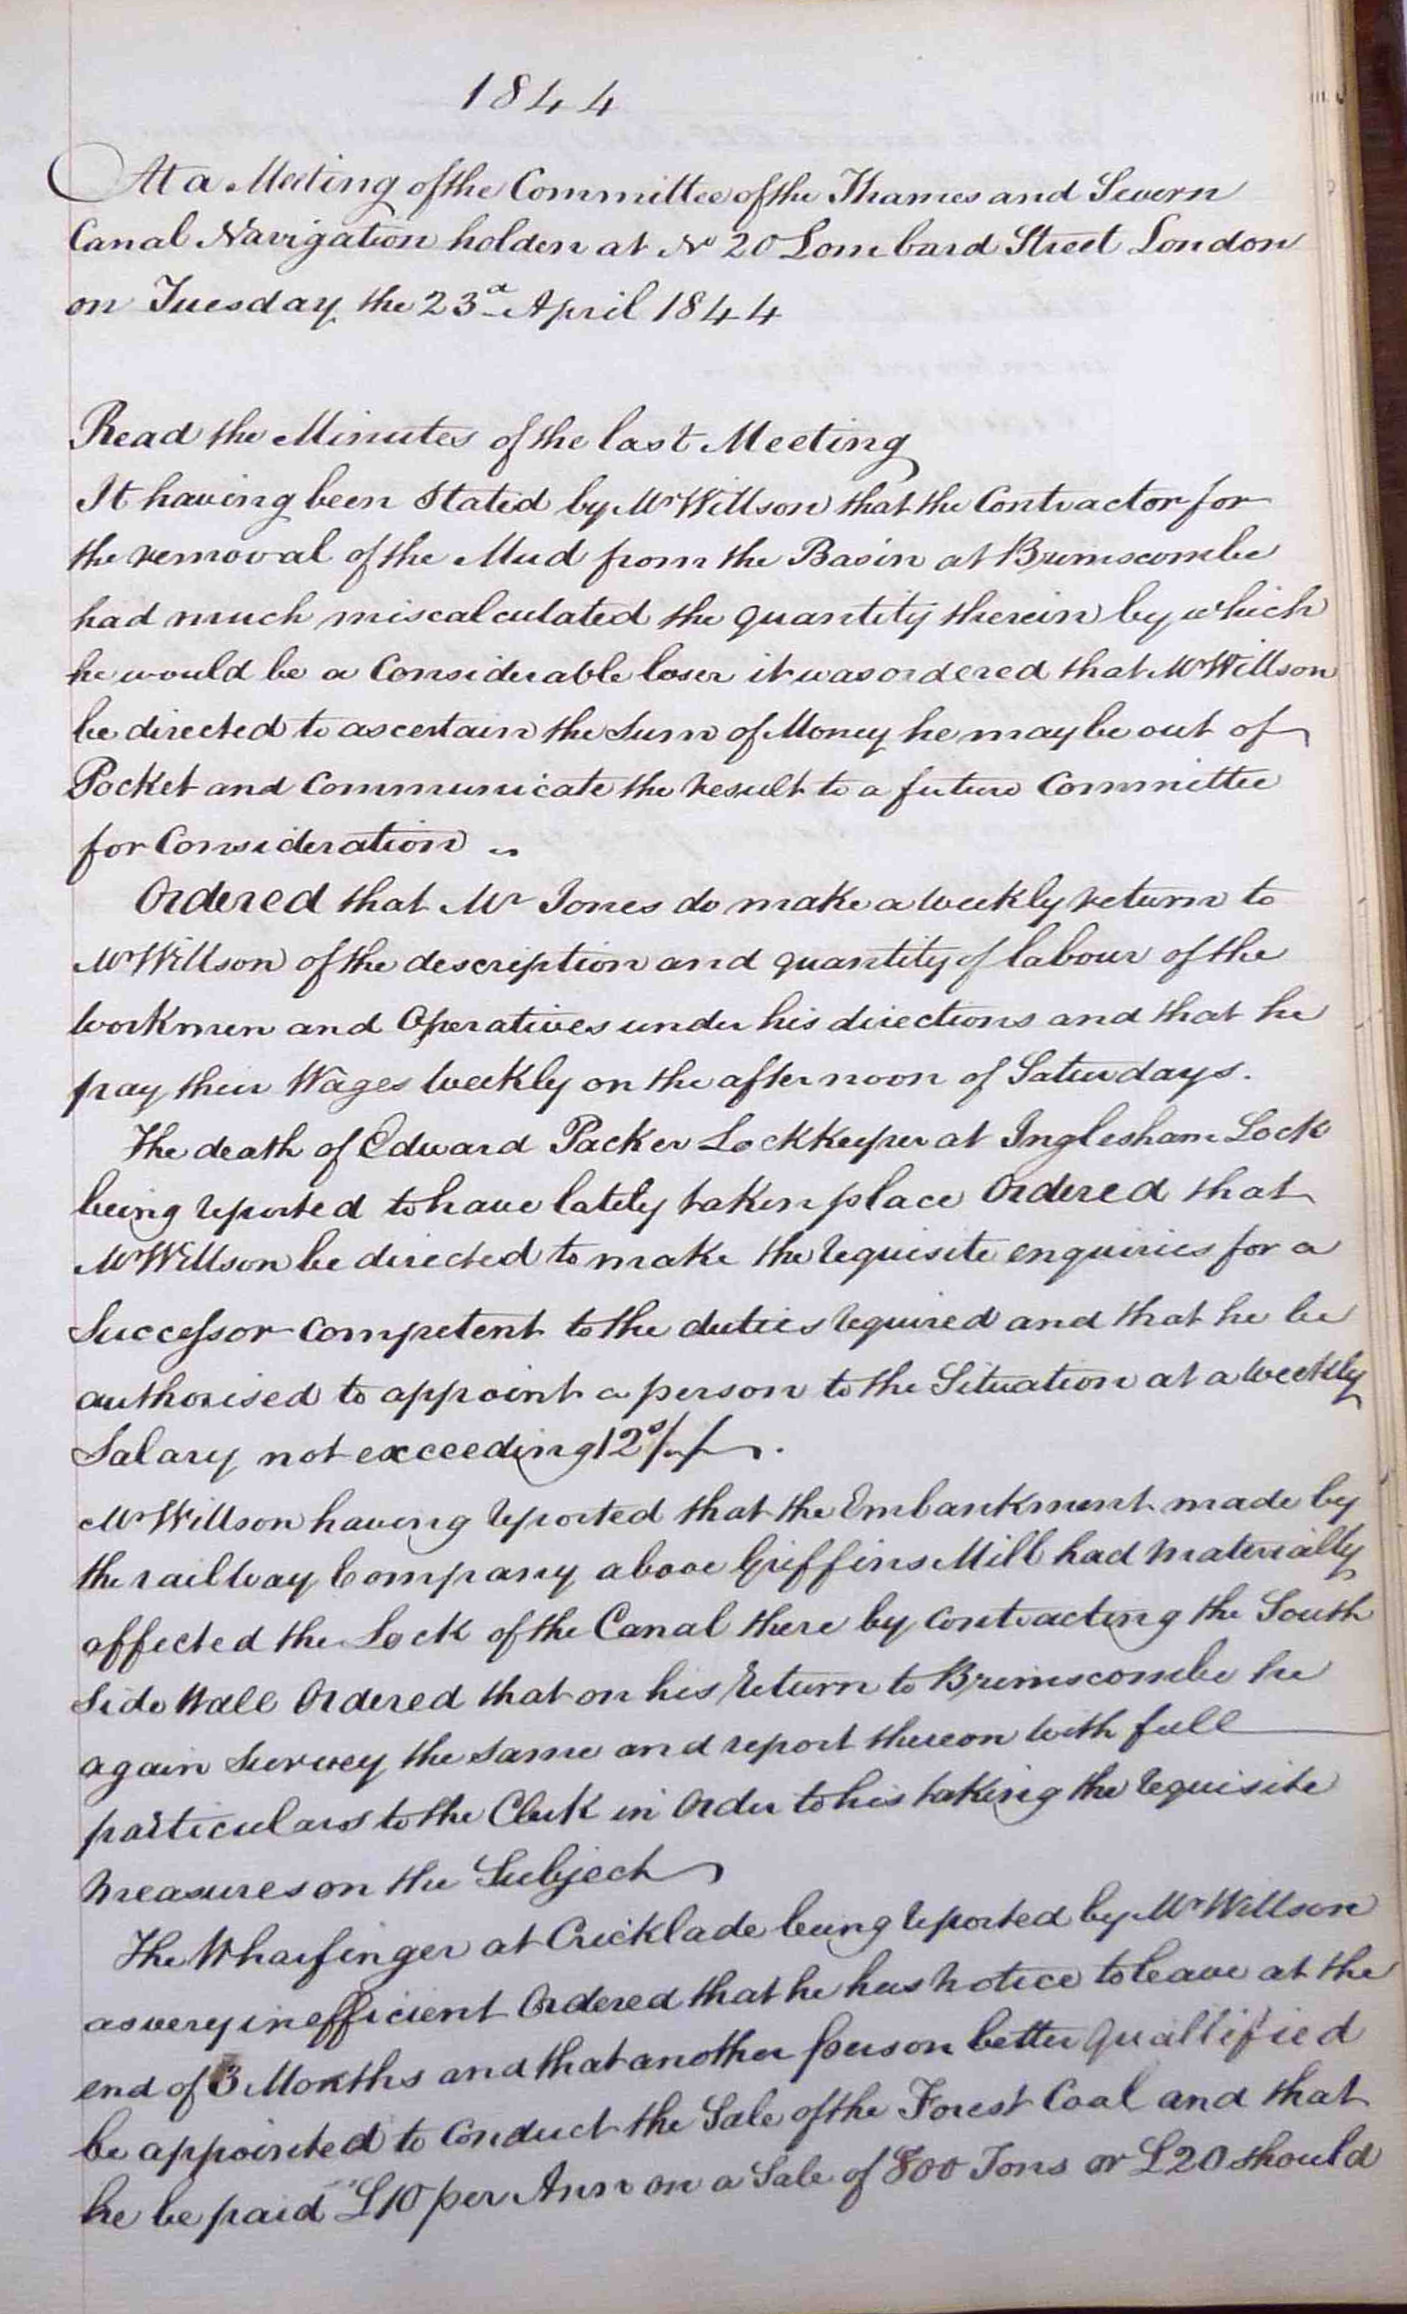 1844
At a Meeting of the Committee of the Thames and Severn
Canal Navigation holden at No 20 Lombard Street London
on Tuesday the 23d April 1844
Read the Minutes of the last Meeting
It having been Stated by Mr Willson that the Contractor for
the removal of the Mud from the Basin at Brimscombe
had much miscalculated the quantity therein by which
he would be a Considerable loser it was ordered that Mr Willson
be directed to ascertain the Sum of Money he may be out of
Pocket and Communicate the result to a future Committee
for Consideration
Ordered that Mr Jones do make a Weekly return to
Mr Willson of the description and quantity of labour of the
Workmen and Operatives under his directions and that he
pay their Wages Weekly on the afternoon of Saturdays.
The death of Edward Packer Lock Keeper at Inglesham Lock
being reported to have lately taken place Ordered that
Mr Willson be directed to make the requisite enquiries for a
Successor competent to the duties required and that he be
authorised to appoint a person to the Situation at a Weekly
Salary not exceeding 12s/-/-.
Mr Willson having reported that the Embankment made by
the railway Company above Griffins Mill had Materially
affected the Lock of the Canal there by contracting the South
Side Wall Ordered that on his return to Brimscombe he
again Survey the Same and report thereon with full
particulars to the Clerk in Order to his taking the requisite
Measures on the Subject
The Wharfinger at Cricklade being reported by Mr Willson
as very inefficient Ordered that he has Notice to leave at the
end of 3 Months and that another person better Quallified
be appointed to Conduct the Sale of the Forest Coal and that
he be paid £10 per Ann on a Sale of 800 Tons or £20 should